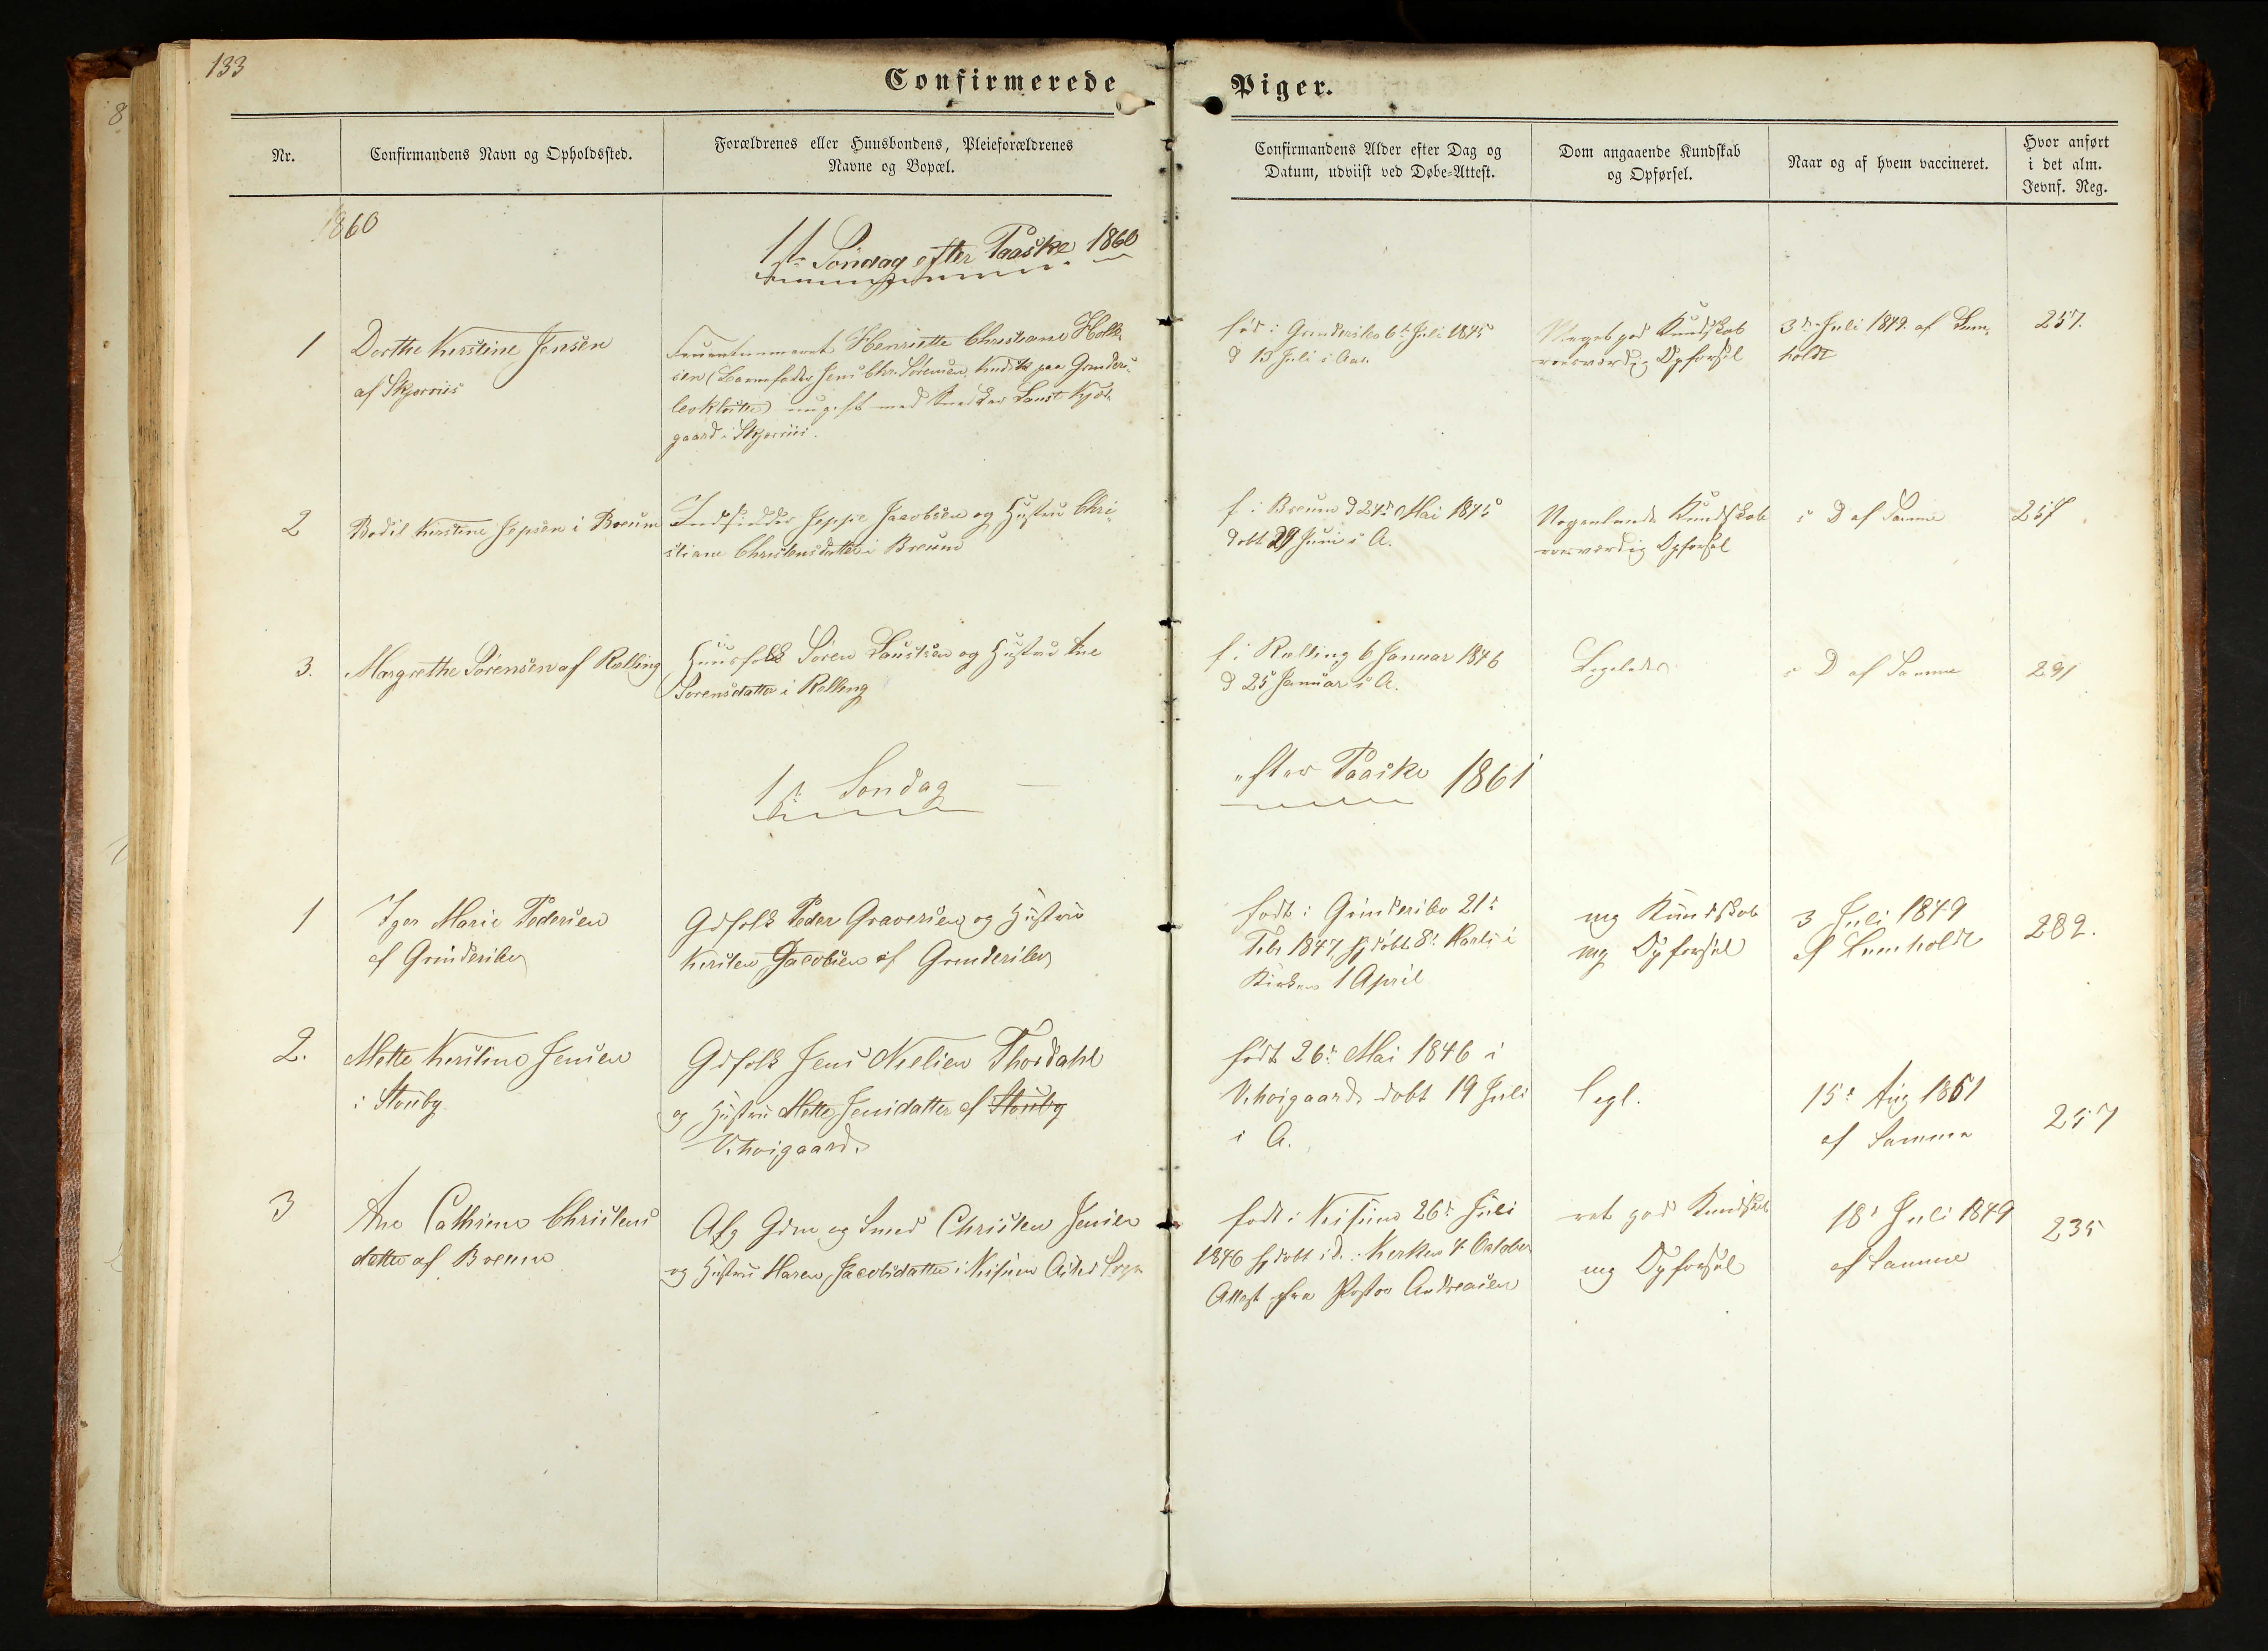 133
Confirmerede Piger.
Nr.
Confirmandens Navn og Opholdssted.
Forældrenes eller Huusbondens, Pleieforældrenes
Navne og Bopæl.
Confirmandens Alder efter Dag og
Datum, udviist ved Døbe-Attest.
Dom angaaende Kundskab
og Opførsel.
Naar og af hvem vaccineret.
Hvor anført
i det alm.
Jevnf. Reg.
1860
1ste Søndag efter Paaske 1860
1
Dorthe Kirstine Jensen
af Skjerriis
Fruentimmeret Henriette Christiane Holk-
sen (Barnefader Jens Chr. Sørensen, Kudsk paa Grinders-
levkloster) nu gift med Laust Kjær-
gaard i Skjerriis.
fød i Grinderslev 6te Juli 1845
d 13 Juli s Aar.
Meget god Kundskab
roesværdig Opførsel
3die Juli 1849. af Lum-
holdt
257.
2
Bodil Kirstine Jepsen i Breum
Indsidder Jeppe Jacobsen og Hustru Chri-
stiane Christensdatter i Breum
f i Breum d 24de Mai 1845
døbt 29 Juni s A.
Nogenlunde Kundskab
roesværdig Opførsel
s D af Samme
257
3.
Margrethe Sørensen af Rælling
Huusfolk Søren Laustsen og Hustru Ane
Sørensdatter i Rælling
f i Rælling 6 Januar 1846
d 25 Januar s A.
Ligeledes
s D af Samme
291
1ste Søndag —
efter Paaske 1861
1
Iger Marie Pedersen
af Grinderslev
Gdfolk Peder Graversen og Hustru
Kirsten Jacobsen af Grinderslev
født i Grinderslev 21de
Febr 1847, hjdøbt 8de Marts i
Kirken 1 April
mg Kundskab
mg Opførsel
3 Juli 1849
af Lumholdt
282.
2.
Mette Kirstine Jensen
i Stouby
Gdfolk Jens Nielsen Thordahl
og Hustru Mette Jensdatter af Stouby
V.høigaard.
født 26de Mai 1846 i
V.høigaard døbt 19 Juli
s A.
Ligl.
15de Aug 1851
af Samme
257
3
Ane Cathrine Christens
datter af Breum
Afg Gdm og Smed Christen Jensen
og Hustru Maren Jacobsdatter i Krisum Asted Sogn
født i Krisum 26de Juli
1846 hjdøbt i d. Kirken 4 October
Attest fra Pastor Andreasen
ret god Kundskab
mg Opførsel
18de Juli 1849
af Samme
235